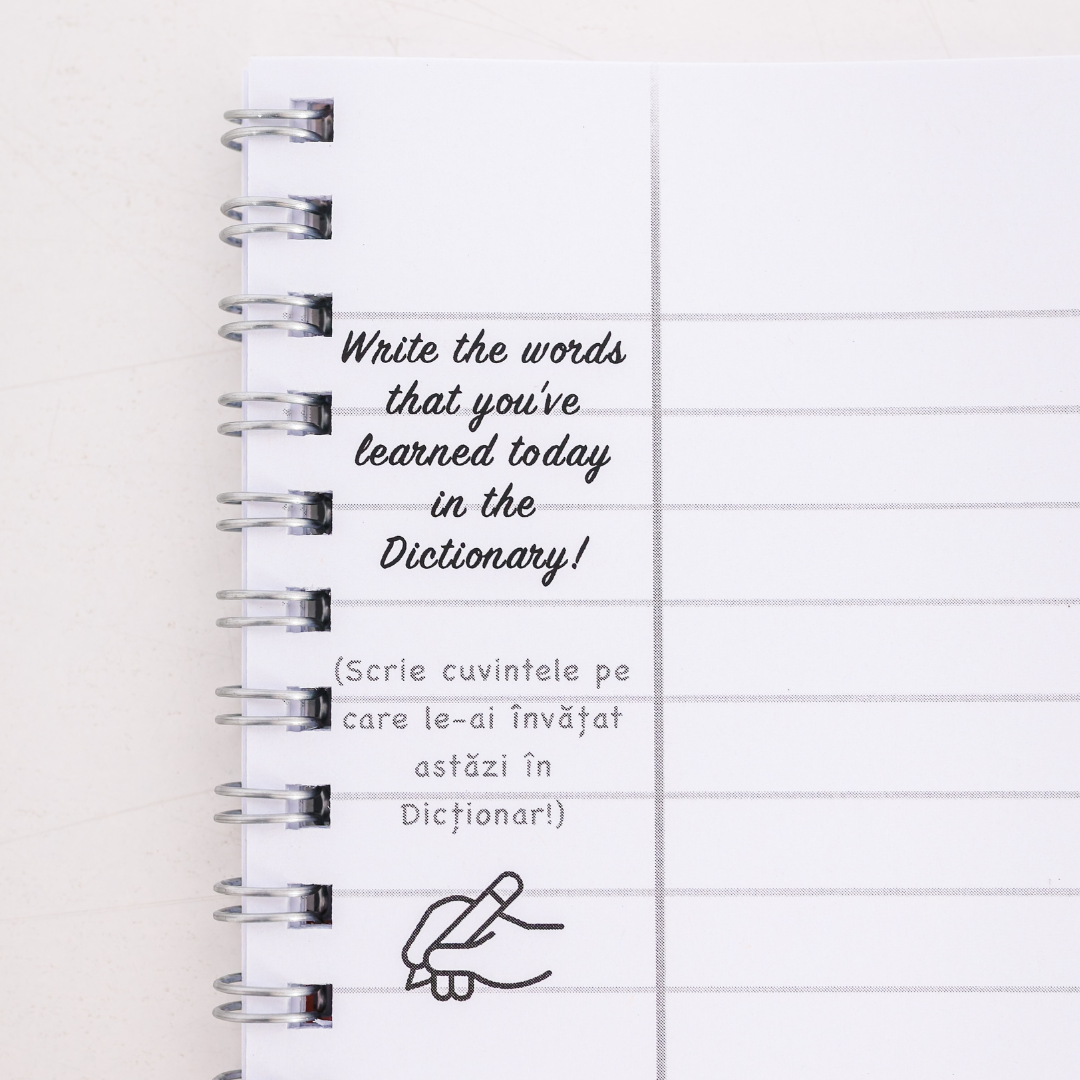 Write the words
that you've
learned today
in the
Dictionary!
(Scrie cuvintele pe
care le-ai învățat
astăzi în
Dicționar!)